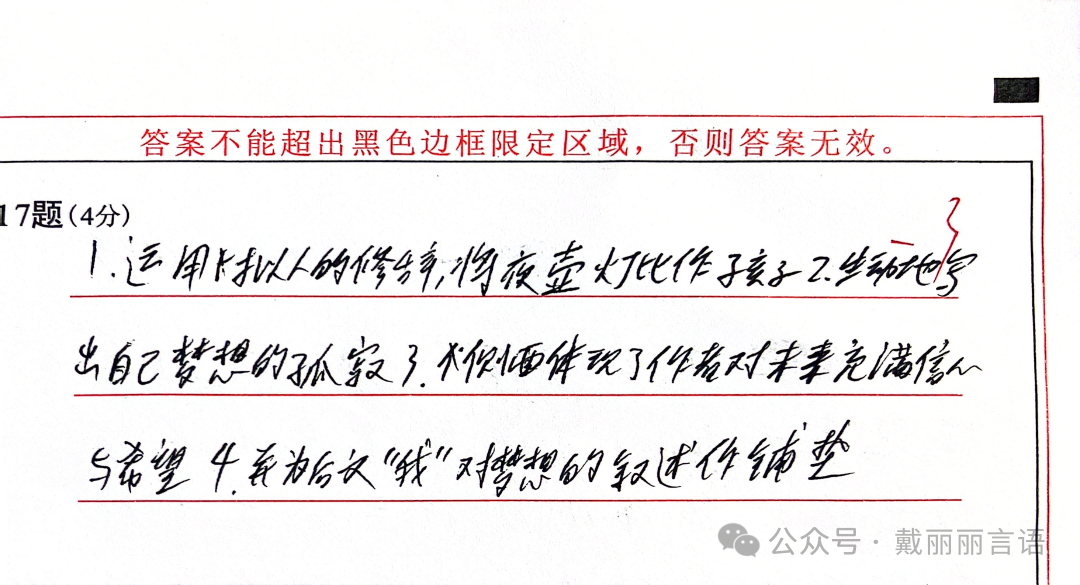 答案不能超出黑色边框限定区域，否则答案无效。
17题(4分)
3
1.运用拟人的修辞,将夜壶灯比作孩子2.生动地写
出自己梦想的孤寂3.侧面体现了作者对未来充满信心
与希望 4.并为后文"我"对梦想的叙述作铺垫
公众号·戴丽丽言语